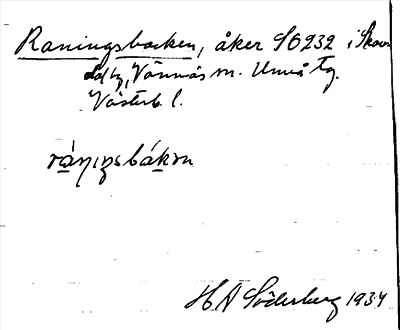 Raningsbacken, åker SO232 i
Vännäs sn. Umeå tg.
Västerb l.
rániŋsbákɳ
H A Söderberg 1934